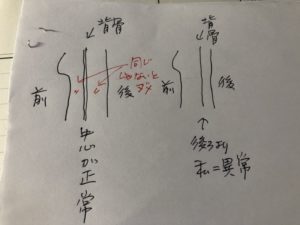 背骨
前
同じ
じゃないと
ダメ
後
中心が正常
背骨
前
後
後ろより
私=異常